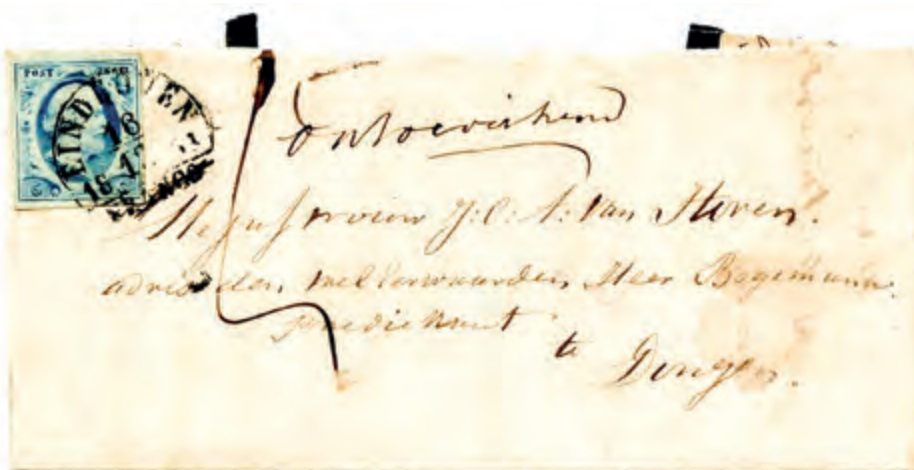 POST ZEGEL
EINDHOVEN
16
FRANCO
5
Mejufvrouw J: C: A: van Hoven.
adres den wel Eerwaarden Heer Bagemann
predikant
te
Dongen.